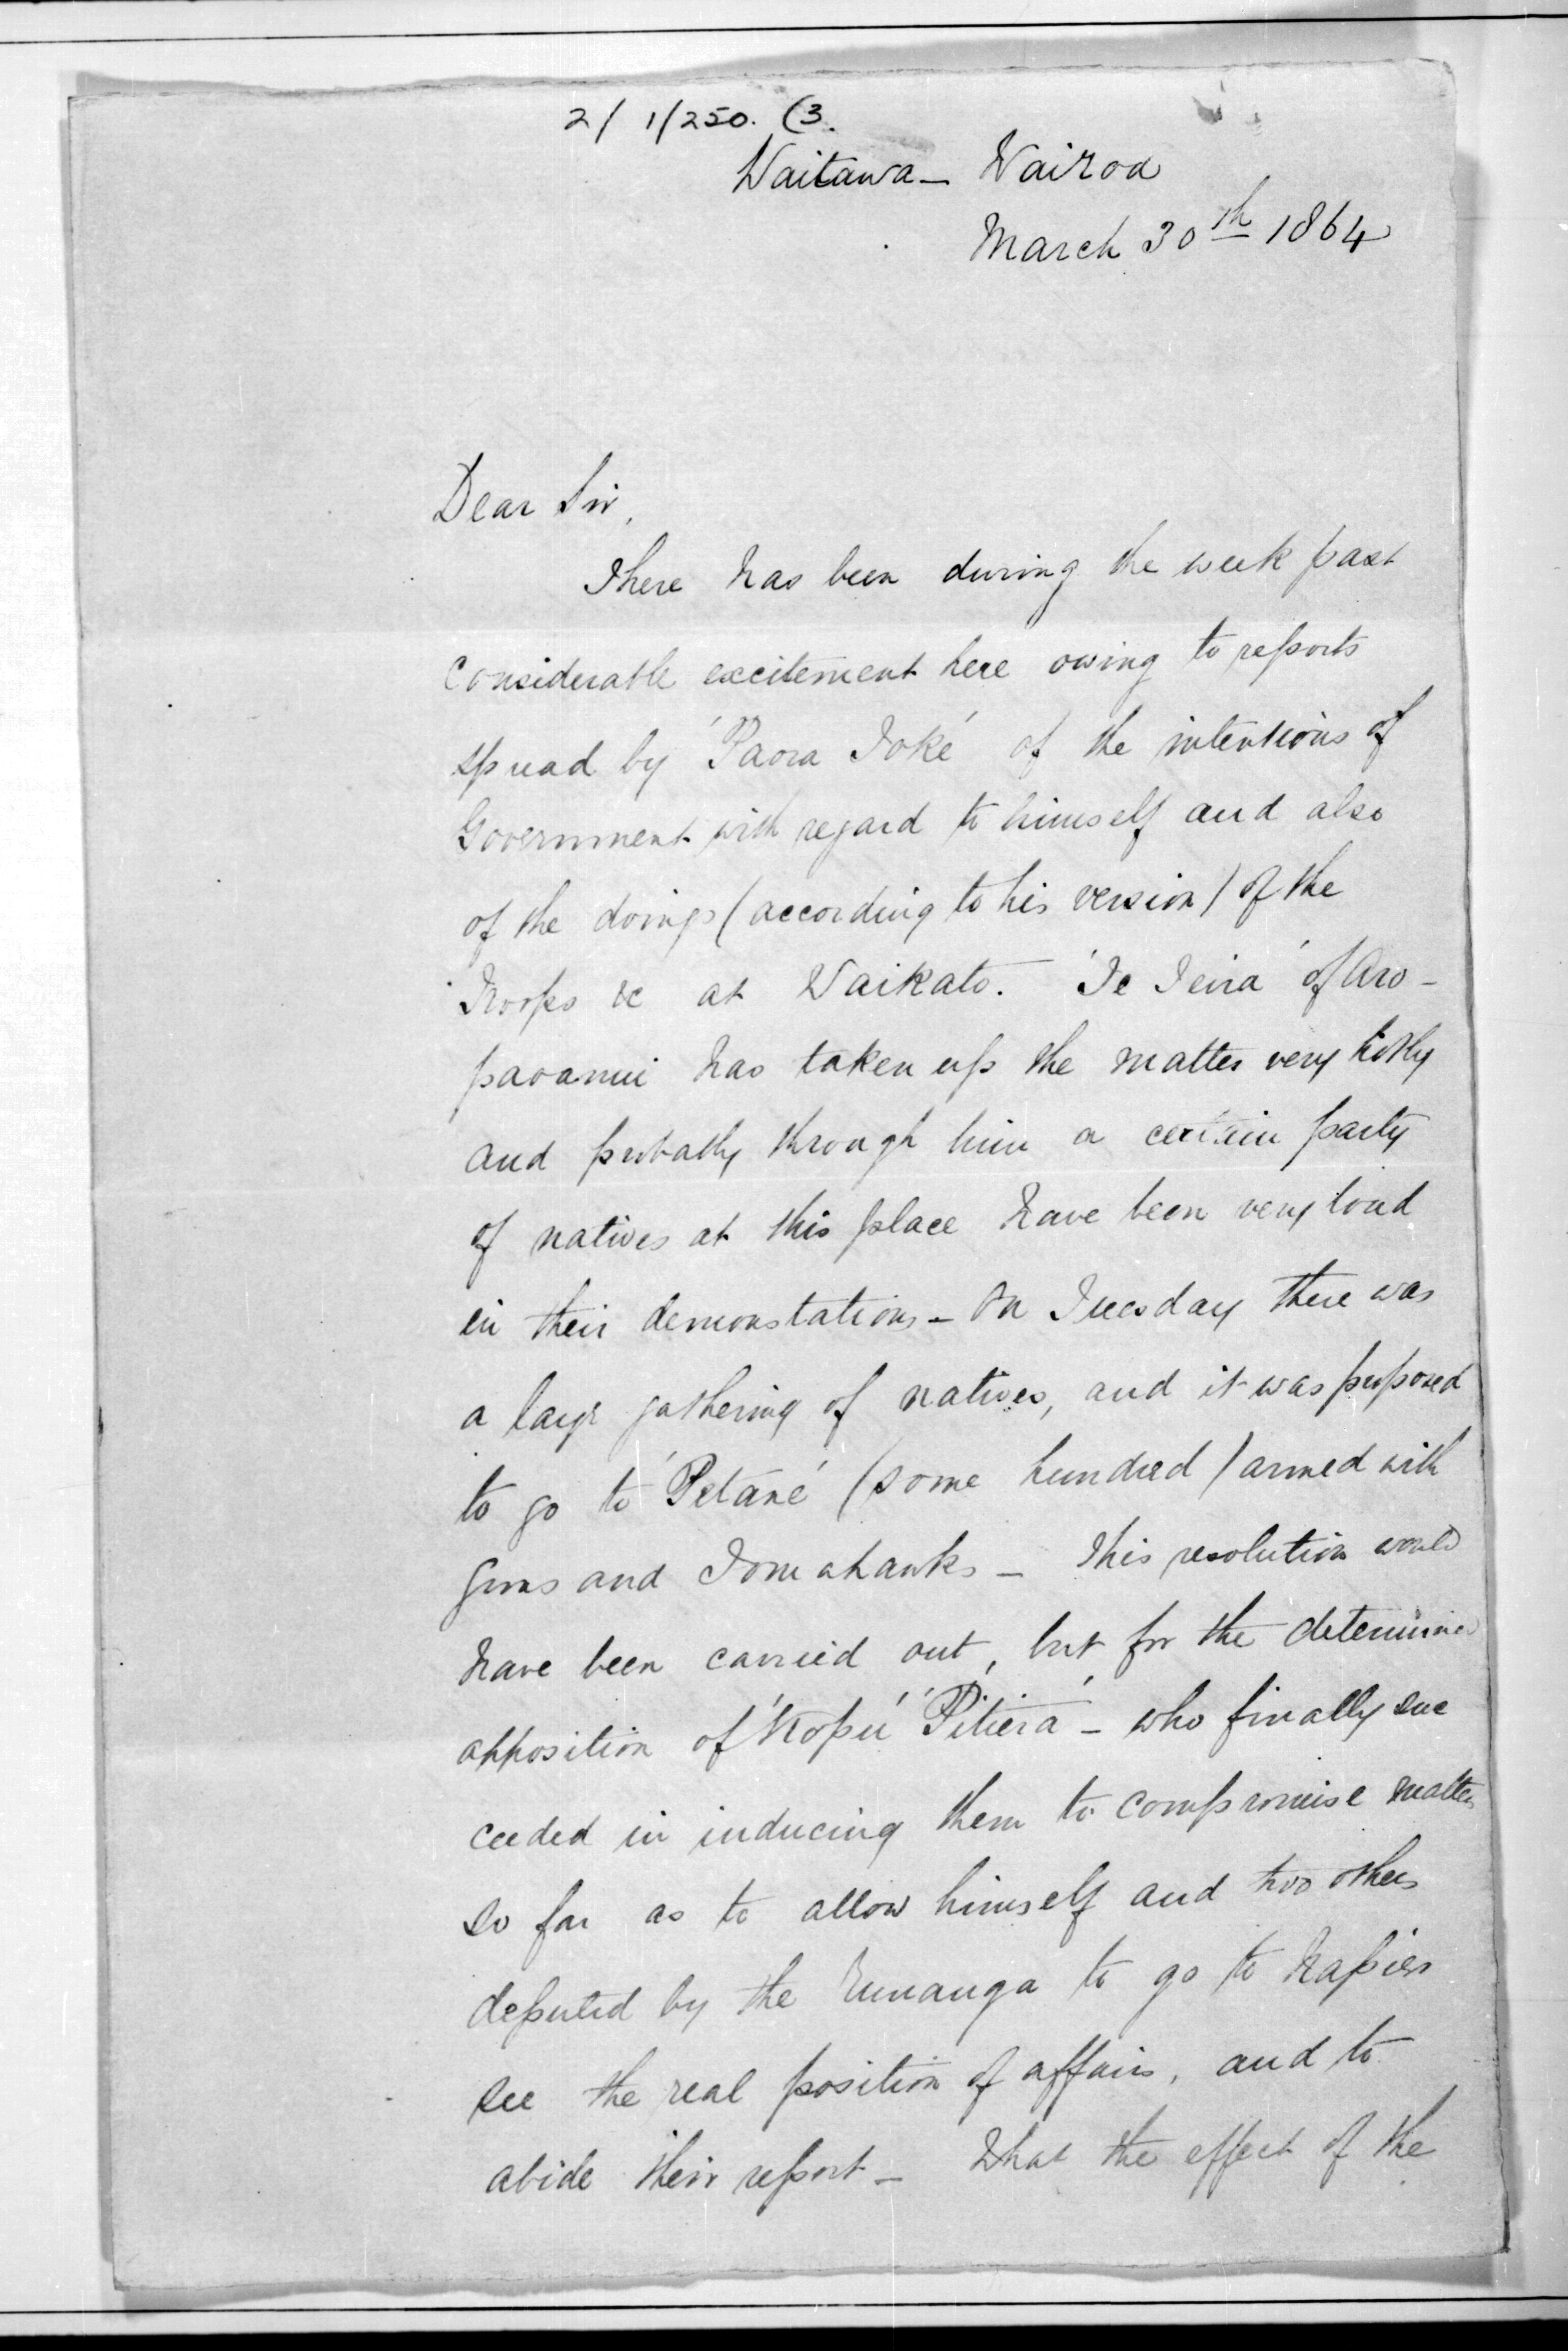 2/ 1/250. (3.
Waitawa – Wairoa
March 30th 1864
Dear Sir,
There has been during the week past
considerable excitement here owing to reports
spread by 'Paora Toké' of the intentions of
Government with regard to himself and also
of the doings (according to his version) of the
Troops &c at Waikato. 'Te Teira' of Aro-
paoanui has taken up the matter very hotly
and probably through him a certain party
of natives at this place have been very loud
in their demonstations – On Tuesday there was
a large gathering of natives, and it was proposed
to go to 'Petané' (some hundred) armed with
guns and Tomahawks – This resolution would
have been carried out, but for the determined
opposition of 'Kopu' 'Pitiera' – who finally suc
ceeded in inducing them to compromise matters
so far as to allow himself and two others
deputed by the Runanga to go to Napier
see the real position of affairs, and to
abide their report – What the effect of the